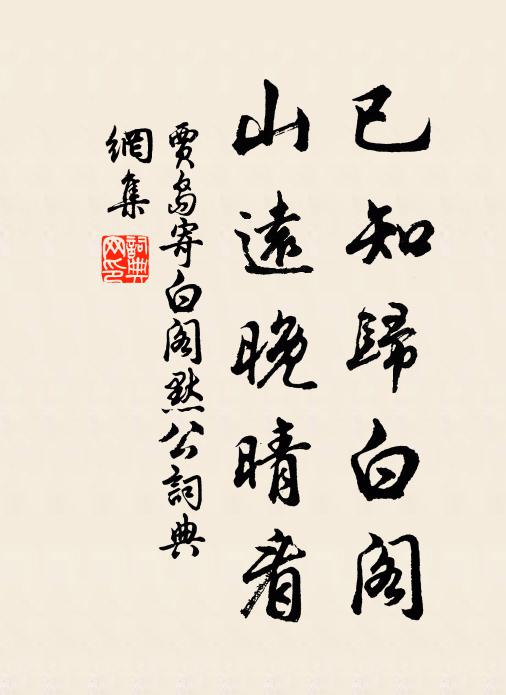 已知歸白阁
山遠晚晴看
賈島寄白阁默公詞典
網集
詞典
网印